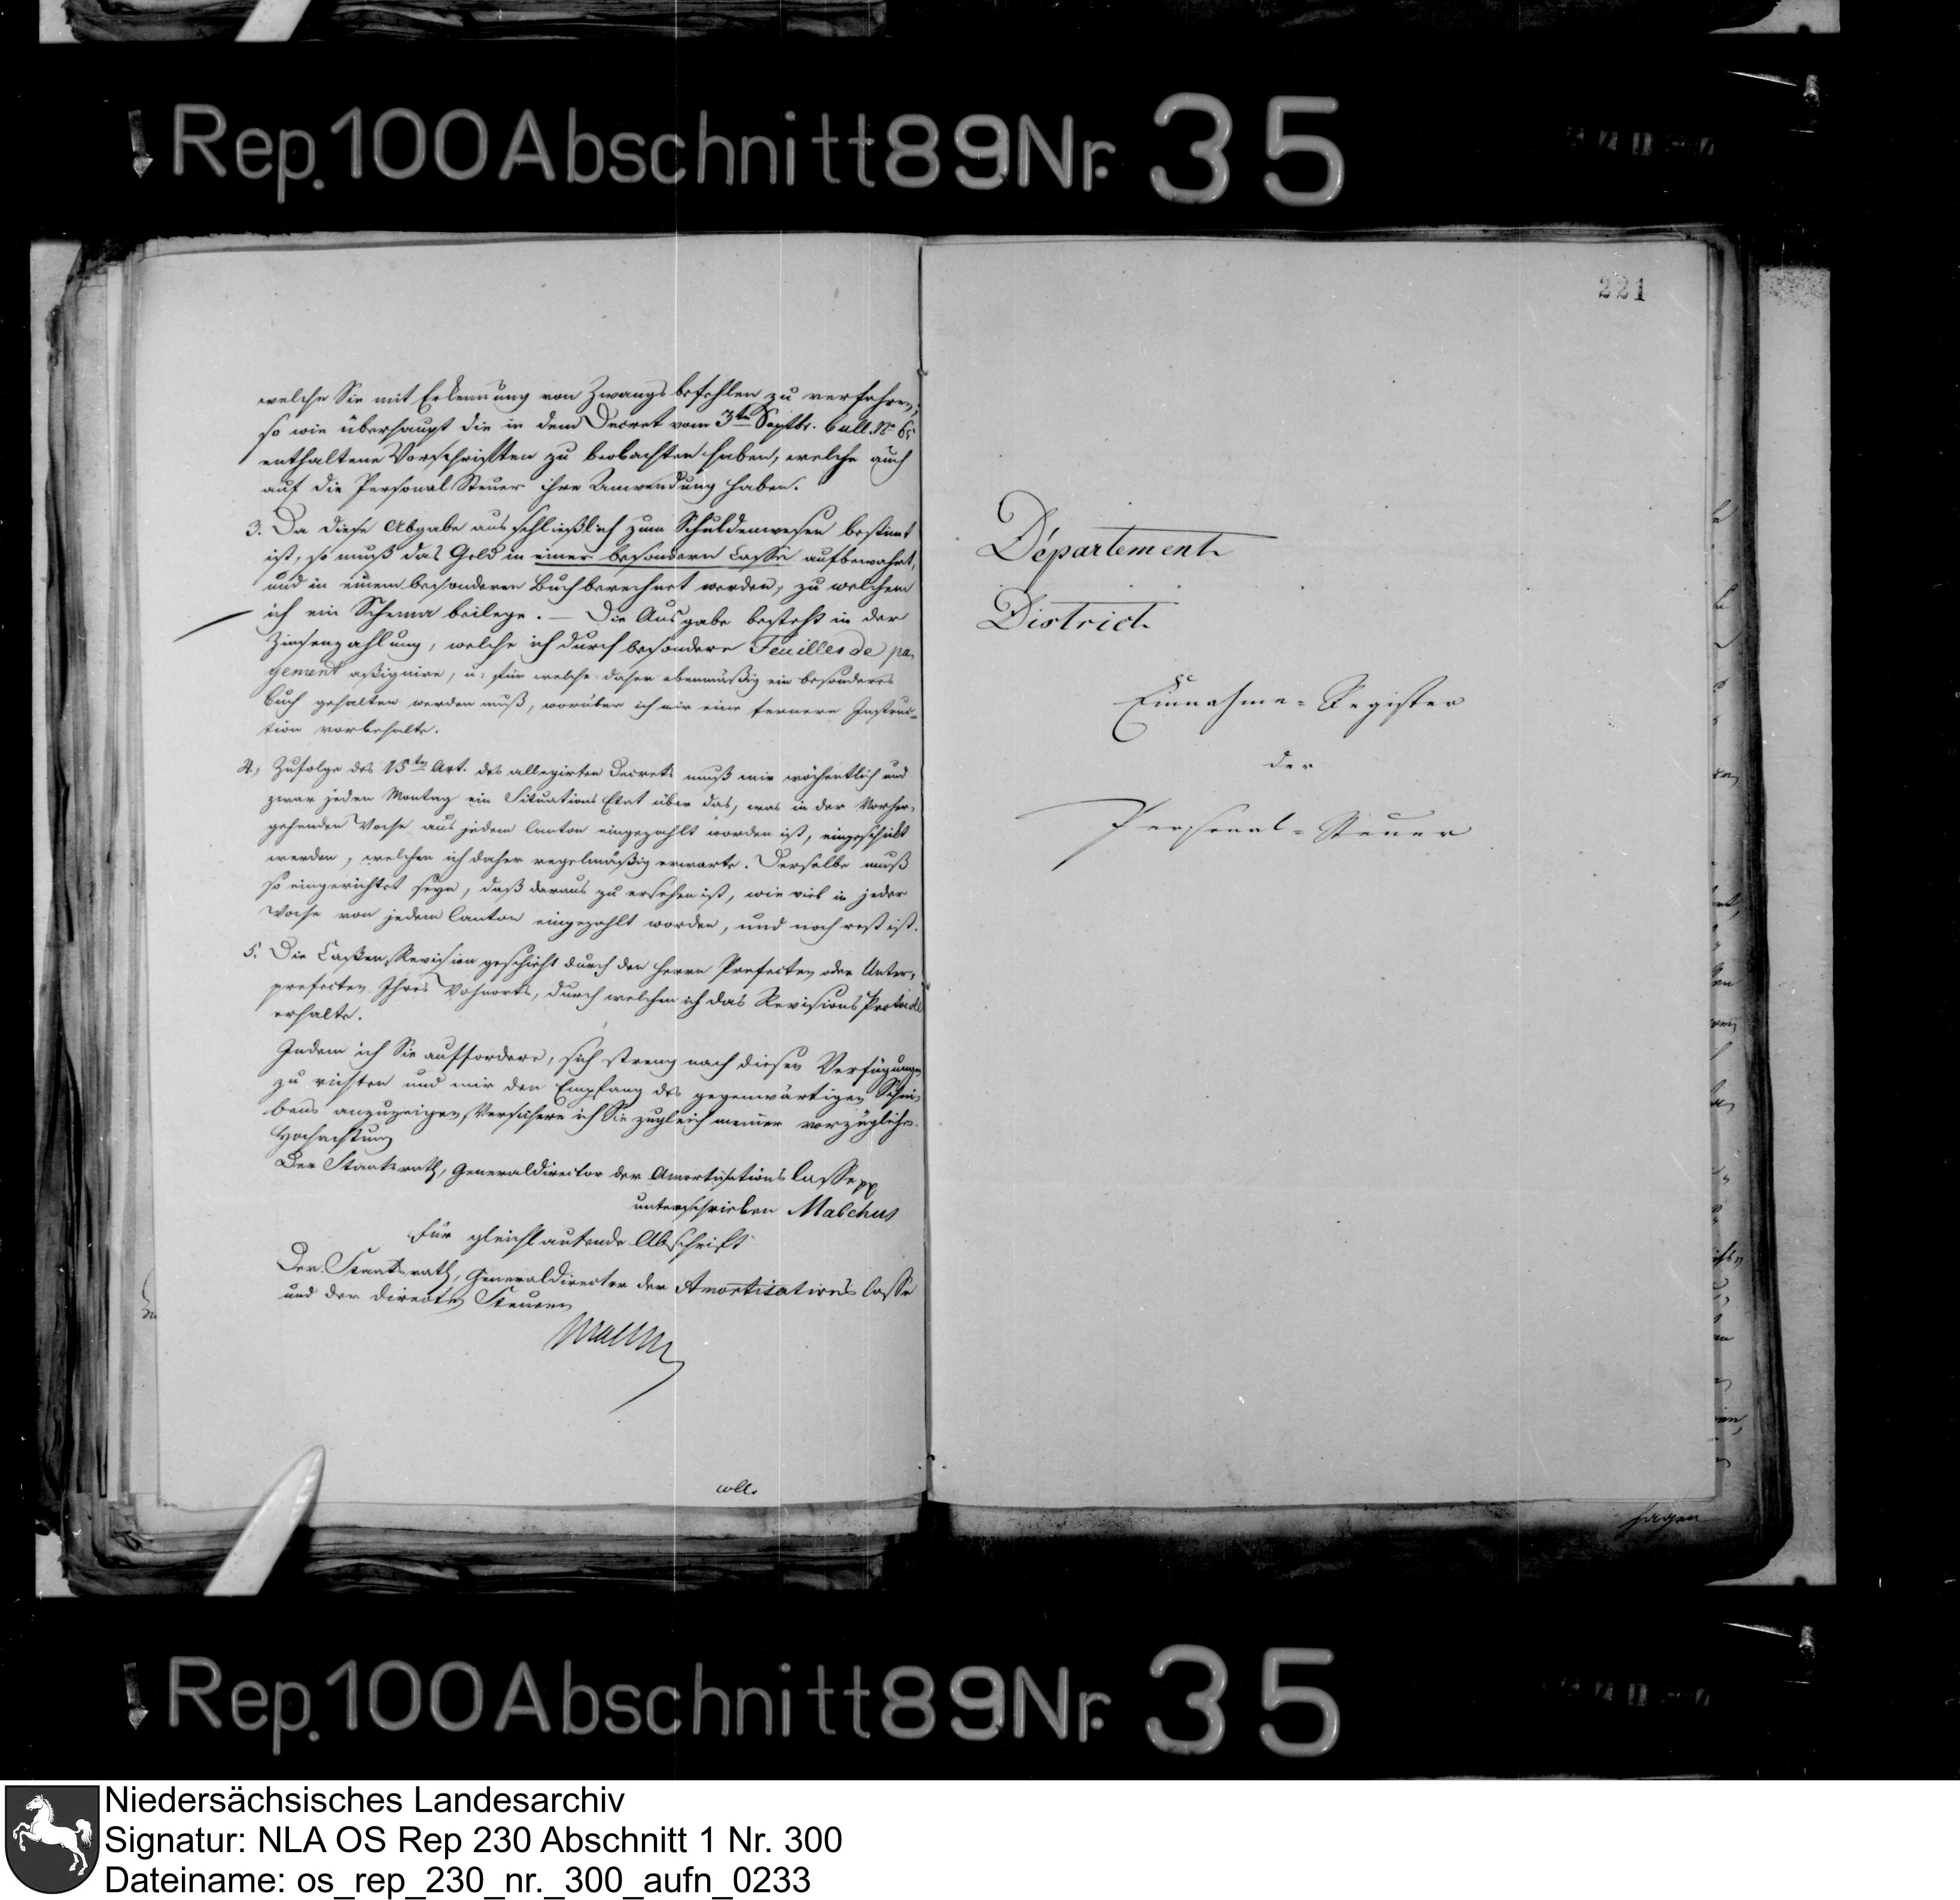 Rep. 100 Abschnitt 89 Nr. 35
welche Sie mit Erkennung von Zwangsbefehlen zu verfahren,
so wie überhaupt die in dem Decret vom 3ten Septbr. Bull. No 65
enthaltene Vorschriften zu beobachten haben, welche auch
auf die Personal Steuer ihre Anwendung haben.
3. Da diese Abgabe ausschließlich zum Schuldenwesen bestimt
ist, so muß das Geld in einer besondern Casse aufbewahrt,
und in einem besonderen Buch berechnet werden, zu welchem
ich ein Schema beilege. — Die Ausgabe besteht in der
Zinsenzahlung, welche ich durch besondere Feuilles de pa-
yement aßignire, u: für welche daher ebenmäßig ein besonderes
Buch gehalten werden muß, worüber ich mir eine fernere Instruc-
tion vorbehalte.
4., Zufolge des 15ten Art. des allegirten Decrets muß mir wöchentlich und
zwar jeden Montag ein Situations Etat über das, was in der Vorher-
gehenden Woche aus jedem Canton eingezahlt worden ist, eingeschikt
werden, welchen ich daher regelmäßig erwarte. Derselbe muß
so eingerichtet seyn, daß daraus zu ersehen ist, wie viel in jeder
Woche von jedem Canton eingezahlt worden, und noch rest ist.
5. Die Caßen Revision geschieht durch den Herrn Prefecten oder Unter-
prefecten Ihres Wohnorts, durch welchen ich das Revisions Protocoll
erhalte.
Indem ich Sie auffordere, sich streng nach diesen Verfügungen
zu richten und mir den Empfang des gegenwärtigen Schrei-
bens anzuzeigen, Versichere ich Sie zugleich meiner vorzüglichen
Hochachtung
Der Staatsrath, Generaldirector der Amortisations Casse pp
unterschrieben Malchus
Für gleichlautende Abschrift
Der Staatsrath, Generaldirector der Amortisations Casse
und der directen Steuern
Malchus
coll.
221
Département
District
Einnahme-Register
der
Personal-Steuer
Rep. 100 Abschnitt 89 Nr. 35
Niedersächsisches Landesarchiv
Signatur: NLA OS Rep 230 Abschnitt 1 Nr. 300
Dateiname: os_rep_230_nr._300_aufn_0233